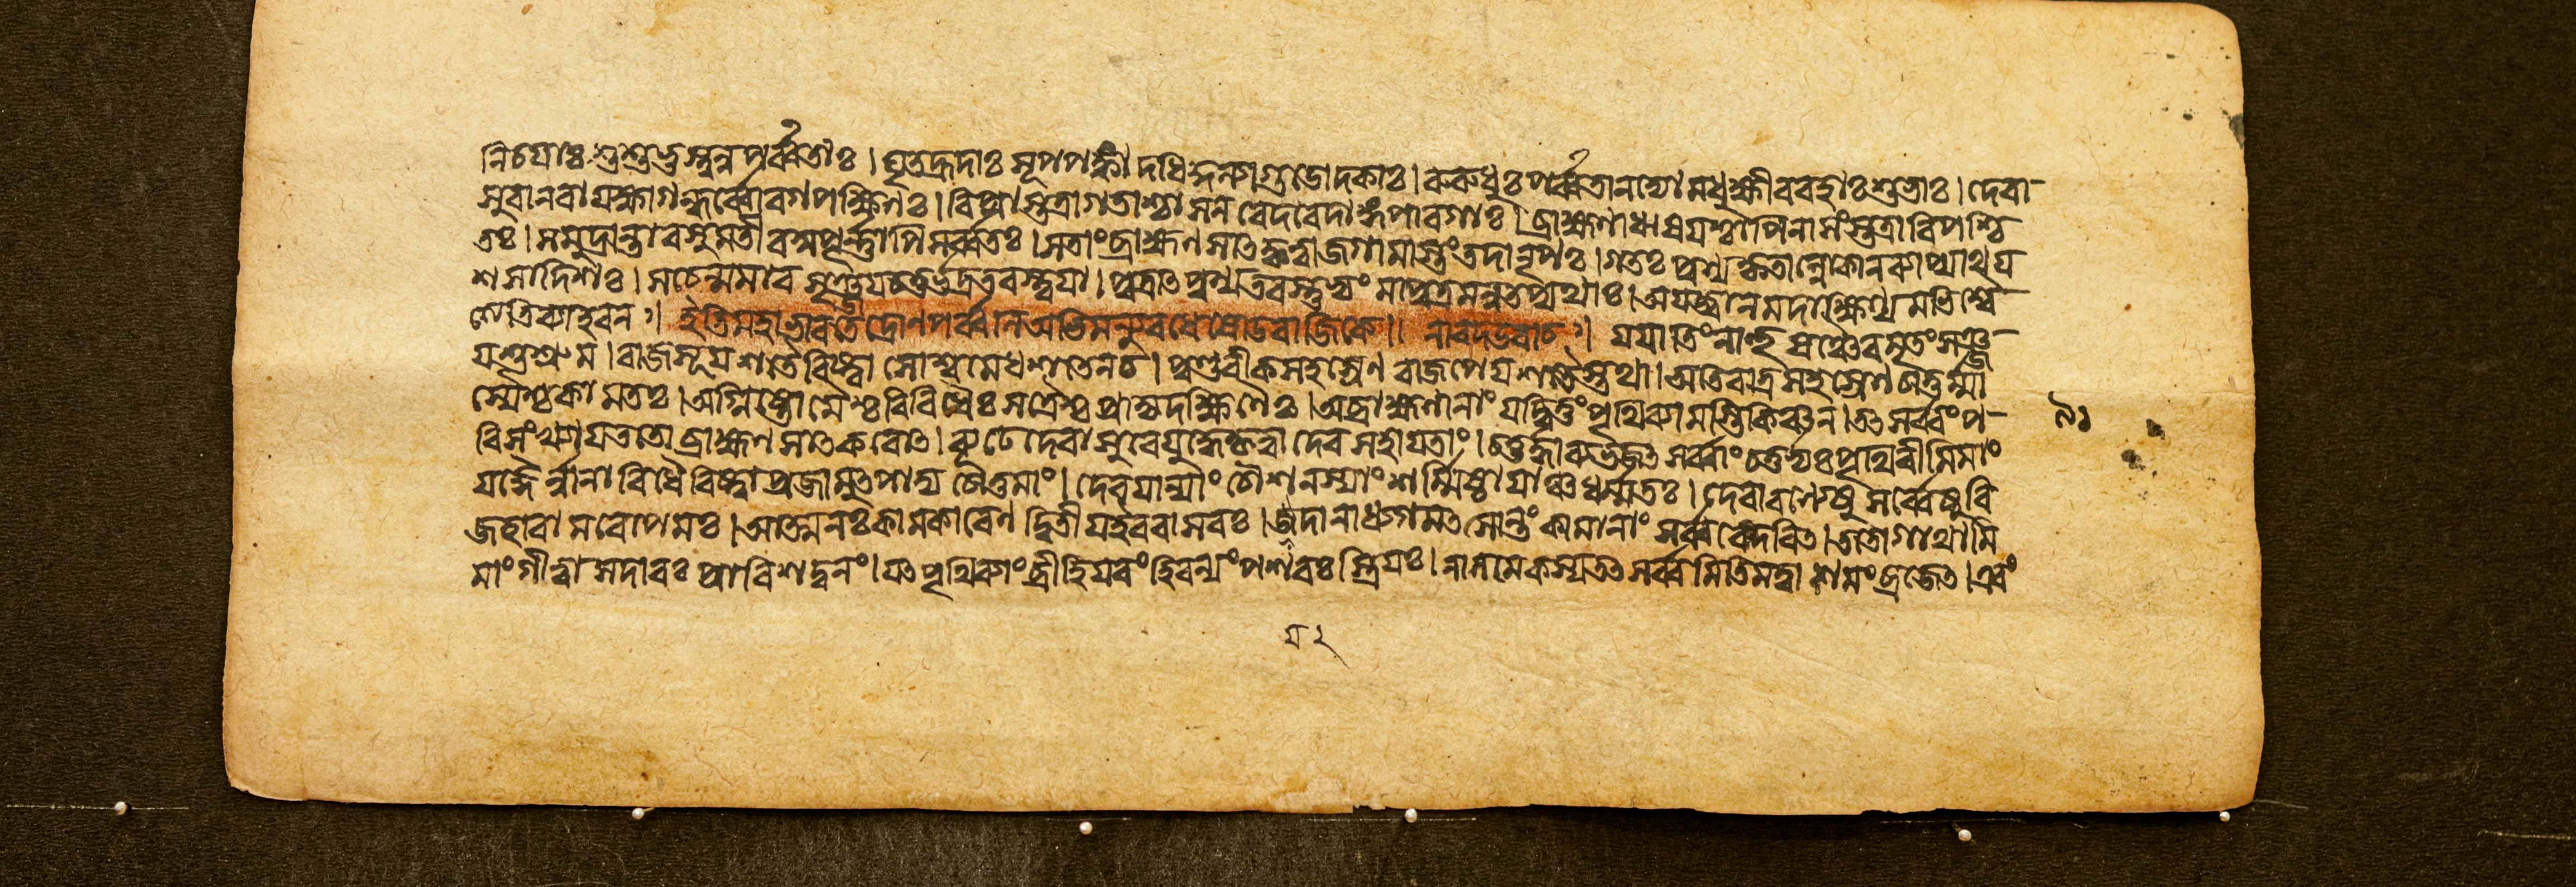 নিচযাঃ শুশুভুস্তন্নপর্ব্বতাঃ । ঘৃতহ্রদাঃ সূপপঙ্কা দধিফেনাগুডোদকাঃ । রুরুধুঃ পর্ব্বতানদ্যো মধুক্ষীরবহাঃ শুভাঃ । দেবা-
সুরানরাযক্ষাগন্ধর্ব্বোরগপক্ষিণঃ । বিপ্রাস্তত্রাগতাশ্চাসন বেদবেদাঙ্গপারগাঃ । ব্রাহ্মণাঋষযশ্চাপিনাসংস্তত্রাবিপশ্চি
তঃ । সমুদ্রান্তাং বসুমতীং বসুপূর্ন্নান্তু সর্ব্বতঃ । সতাং ব্রাহ্মণসাৎকৃত্বাজগামাস্তংতদানৃপঃ । গতঃ পুণ্যকৃতাল্লোকানব্যাপ্যাথ য
শসাদিশঃ । সচেন্মমার সৃঞ্জযচতুর্ভদ্রতরস্ত্বযা । পুত্রাৎ পুণ্যতরস্তুভ্যং মাপুত্রমনুতপ্যথাঃ । অযজ্বানমদাক্ষিণ্যমভিশ্বৈ
ত্যেতিব্যাহরন ঃ। ইতিমহাভারতেদ্রোণপর্ব্বনিঅভিমন্যুবধেষোডরাজিকে॥ নারদউবাচ ঃ। যযাতিংনাহুষঞ্চৈবমৃতংসৃঞ্জ-
যশুশ্রুম । রাজসূযশতৈরিষ্ট্বা সোশ্বমেধশতেনচ । পুণ্ডরীকসহস্রেণ বাজপেযশতৈস্তথা । অতিরাত্রসহস্রেণচাতুর্ম্মা
স্যৈশ্চকামতঃ । অগ্নিষ্টোমৈশ্চবিবিধৈঃ সত্রৈশ্চপ্রাজ্যদক্ষিণৈঃ । অব্রাহ্মণানাং যদ্বিত্তংপৃথিব্যামস্তিকিঞ্চন । তৎ সর্ব্বংপ- ৯১
রিসংখ্যাযততো ব্রাহ্মণসাৎকরোৎ । ব্যূঢেদেবাসুরেযুদ্ধেকৃত্বা দেবসহাযতাং । চতুর্দ্ধাব্যভজৎ সর্ব্বাংচতুর্ভ্যঃ পৃথিবীমিমাং
যজ্ঞৈর্ন্নানাবিধৈরিষ্ট্বাপ্রজামুৎপাদ্য চোত্তমাং । দেবযান্যাং চৌশনস্যাং শর্ম্মিষ্ঠাযাঞ্চধর্ম্মতঃ । দেবারণ্যেষু সর্ব্বেষুবি
জহারামরোপমঃ । আত্মনঃ কামকারেণ দ্বিতীযইববাসবঃ । যদানাধ্যগমৎ সোন্তং কামানাং সর্ব্ববেদবিৎ । ততোগাথামি
মাংগীত্বাসদারঃ প্রাবিশদ্বনং । যৎ পৃথিব্যাংব্রীহিযবংহিরন্যংপশবঃ স্ত্রিযঃ । নালমেকস্যতৎ সর্ব্বমিতিমত্বা শমংব্রজেৎ । এবং
য ২